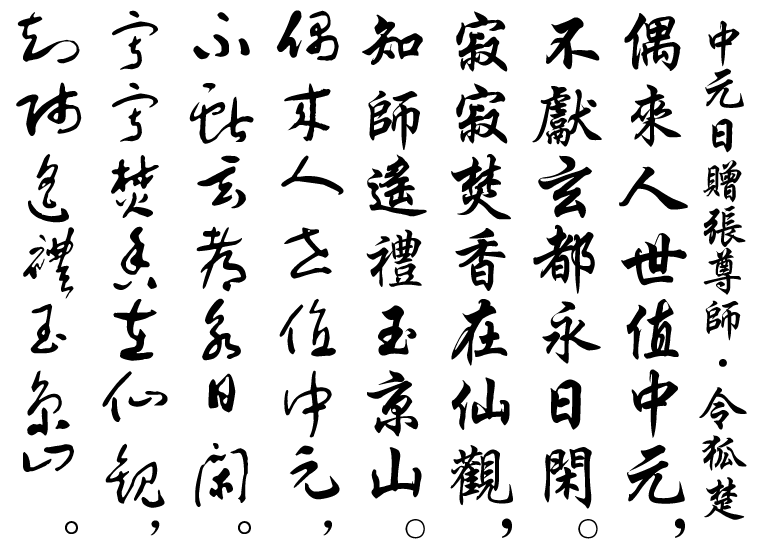 中元日贈張尊師·令狐楚
偶來人世值中元,
不獻玄都永日閑。
寂寂焚香在仙觀,
知師遙禮玉京山。
偶来人世值中元,
不献玄都永日闲。
寂寂焚香在仙观,
知师遥礼玉京山。